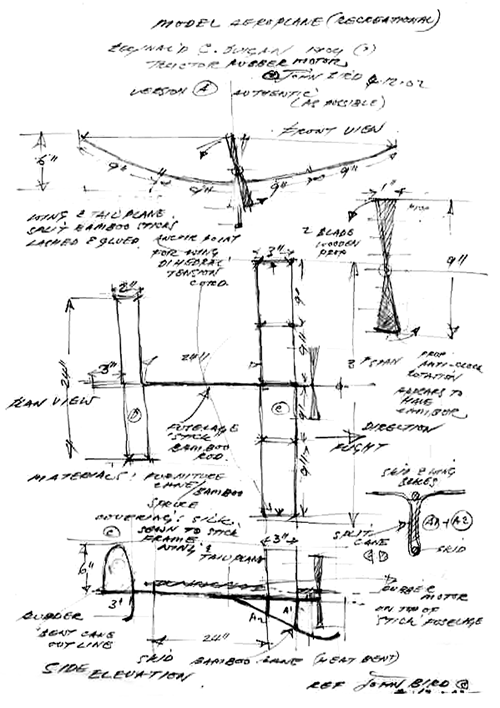 MODEL AEROPLANE (RECREATIONAL)
C. 1909 (?)
TRACTOR RUBBER MOTOR
© JOHN BIRD 9.12.02
VERSION A AUTHENTIC
(AS POSSIBLE)
FRONT VIEW
6"
9" 9" 9" 9"
WING & TAILPLANE
SPLIT BAMBOO STICKS
LASHED & GLUED
ANCHOR POINT
FOR WING
DIHEDRAL
TENSION
CORD.
1"
2 BLADE
WOODEN
PROP
9"
2"
3"
24"
3"
24"
9"
9"
9"
9"
3' SPAN
PROP
ANTI-CLOCK
ROTATION
APPEARS TO
HAVE
CAMBER
PLAN VIEW
FUSELAGE
'STICK'
BAMBOO
ROD
DIRECTION
FLIGHT
MATERIALS: FURNITURE
CANE/
BAMBOO
SPRUCE
COVERING: SILK
SEWN TO STICK
FRAME.
WING &
TAILPLANE
SKID & WING
A1 + A2
SPLIT
CANE
SKID
6"
3"
3"
A2 A1
RUBBER
MOTOR
ON TOP OF
'STICK' FUSELAGE
RUDDER
BENT CANE
OUTLINE
24"
SKID BAMBOO CANE (HEAT BENT)
SIDE
ELEVATION
REF JOHN BIRD ©